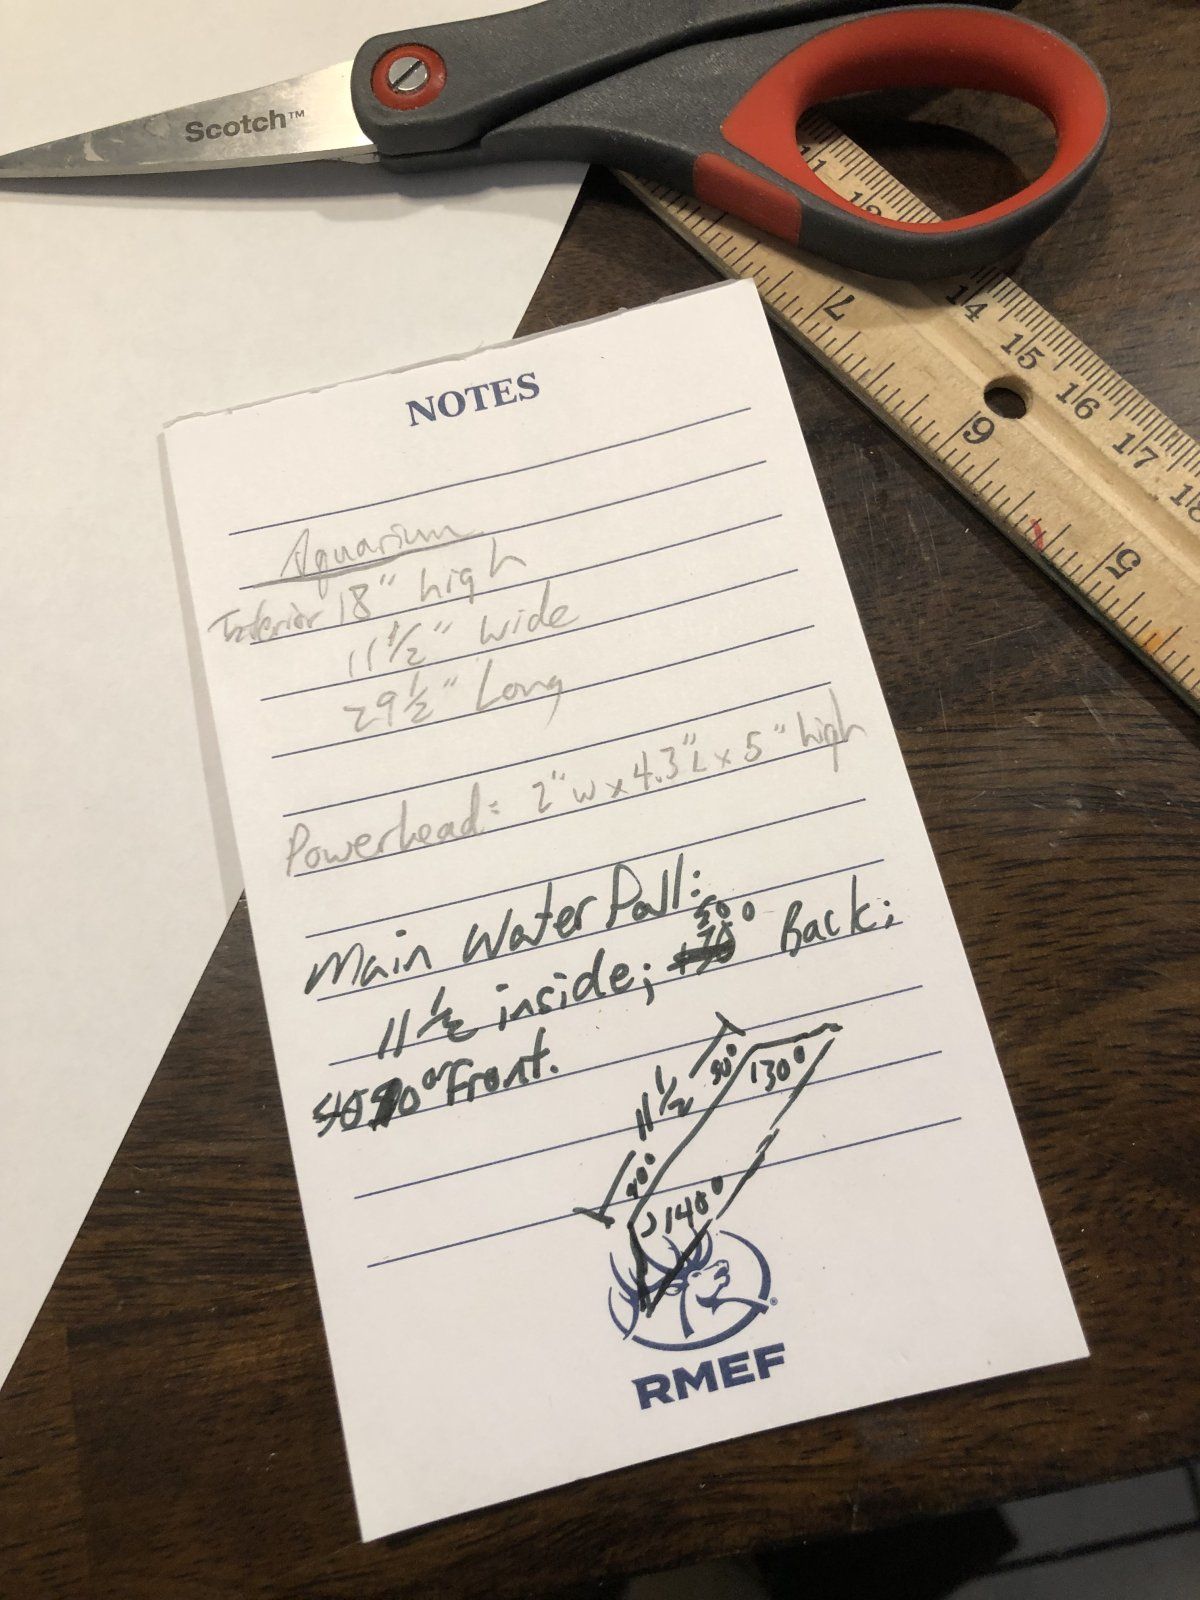 Scotch™
11
12
14
15
16
17
18
7
6
5
NOTES
Aquarium
Interior 18" high
11 1/2" wide
29 1/2" Long
Powerhead: 2"w x 4.3"L x 5" high
Main Water Pall:
50
11 1/2 inside; ° Back;
40° Front.
11 1/2
50°
130°
40°
140°
RMEF